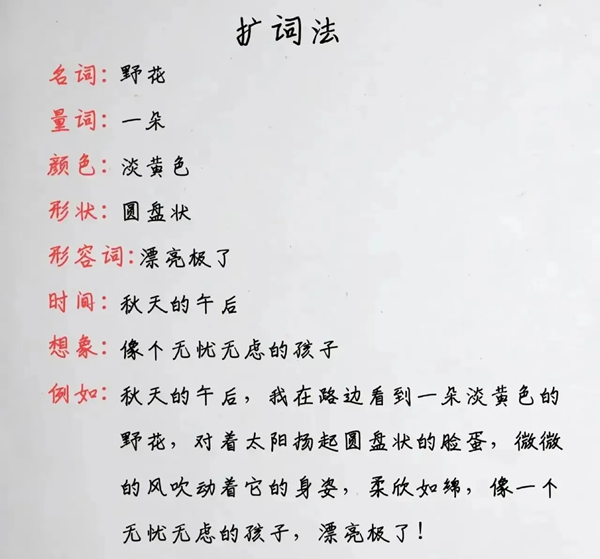 扩词法
名词：野花
量词：一朵
颜色：淡黄色
形状：圆盘状
形容词：漂亮极了
时间：秋天的午后
想象：像个无忧无虑的孩子
例如：秋天的午后，我在路边看到一朵淡黄色的
野花，对着太阳扬起圆盘状的脸蛋，微微
的风吹动着它的身姿，柔欣如绵，像一个
无忧无虑的孩子，漂亮极了！